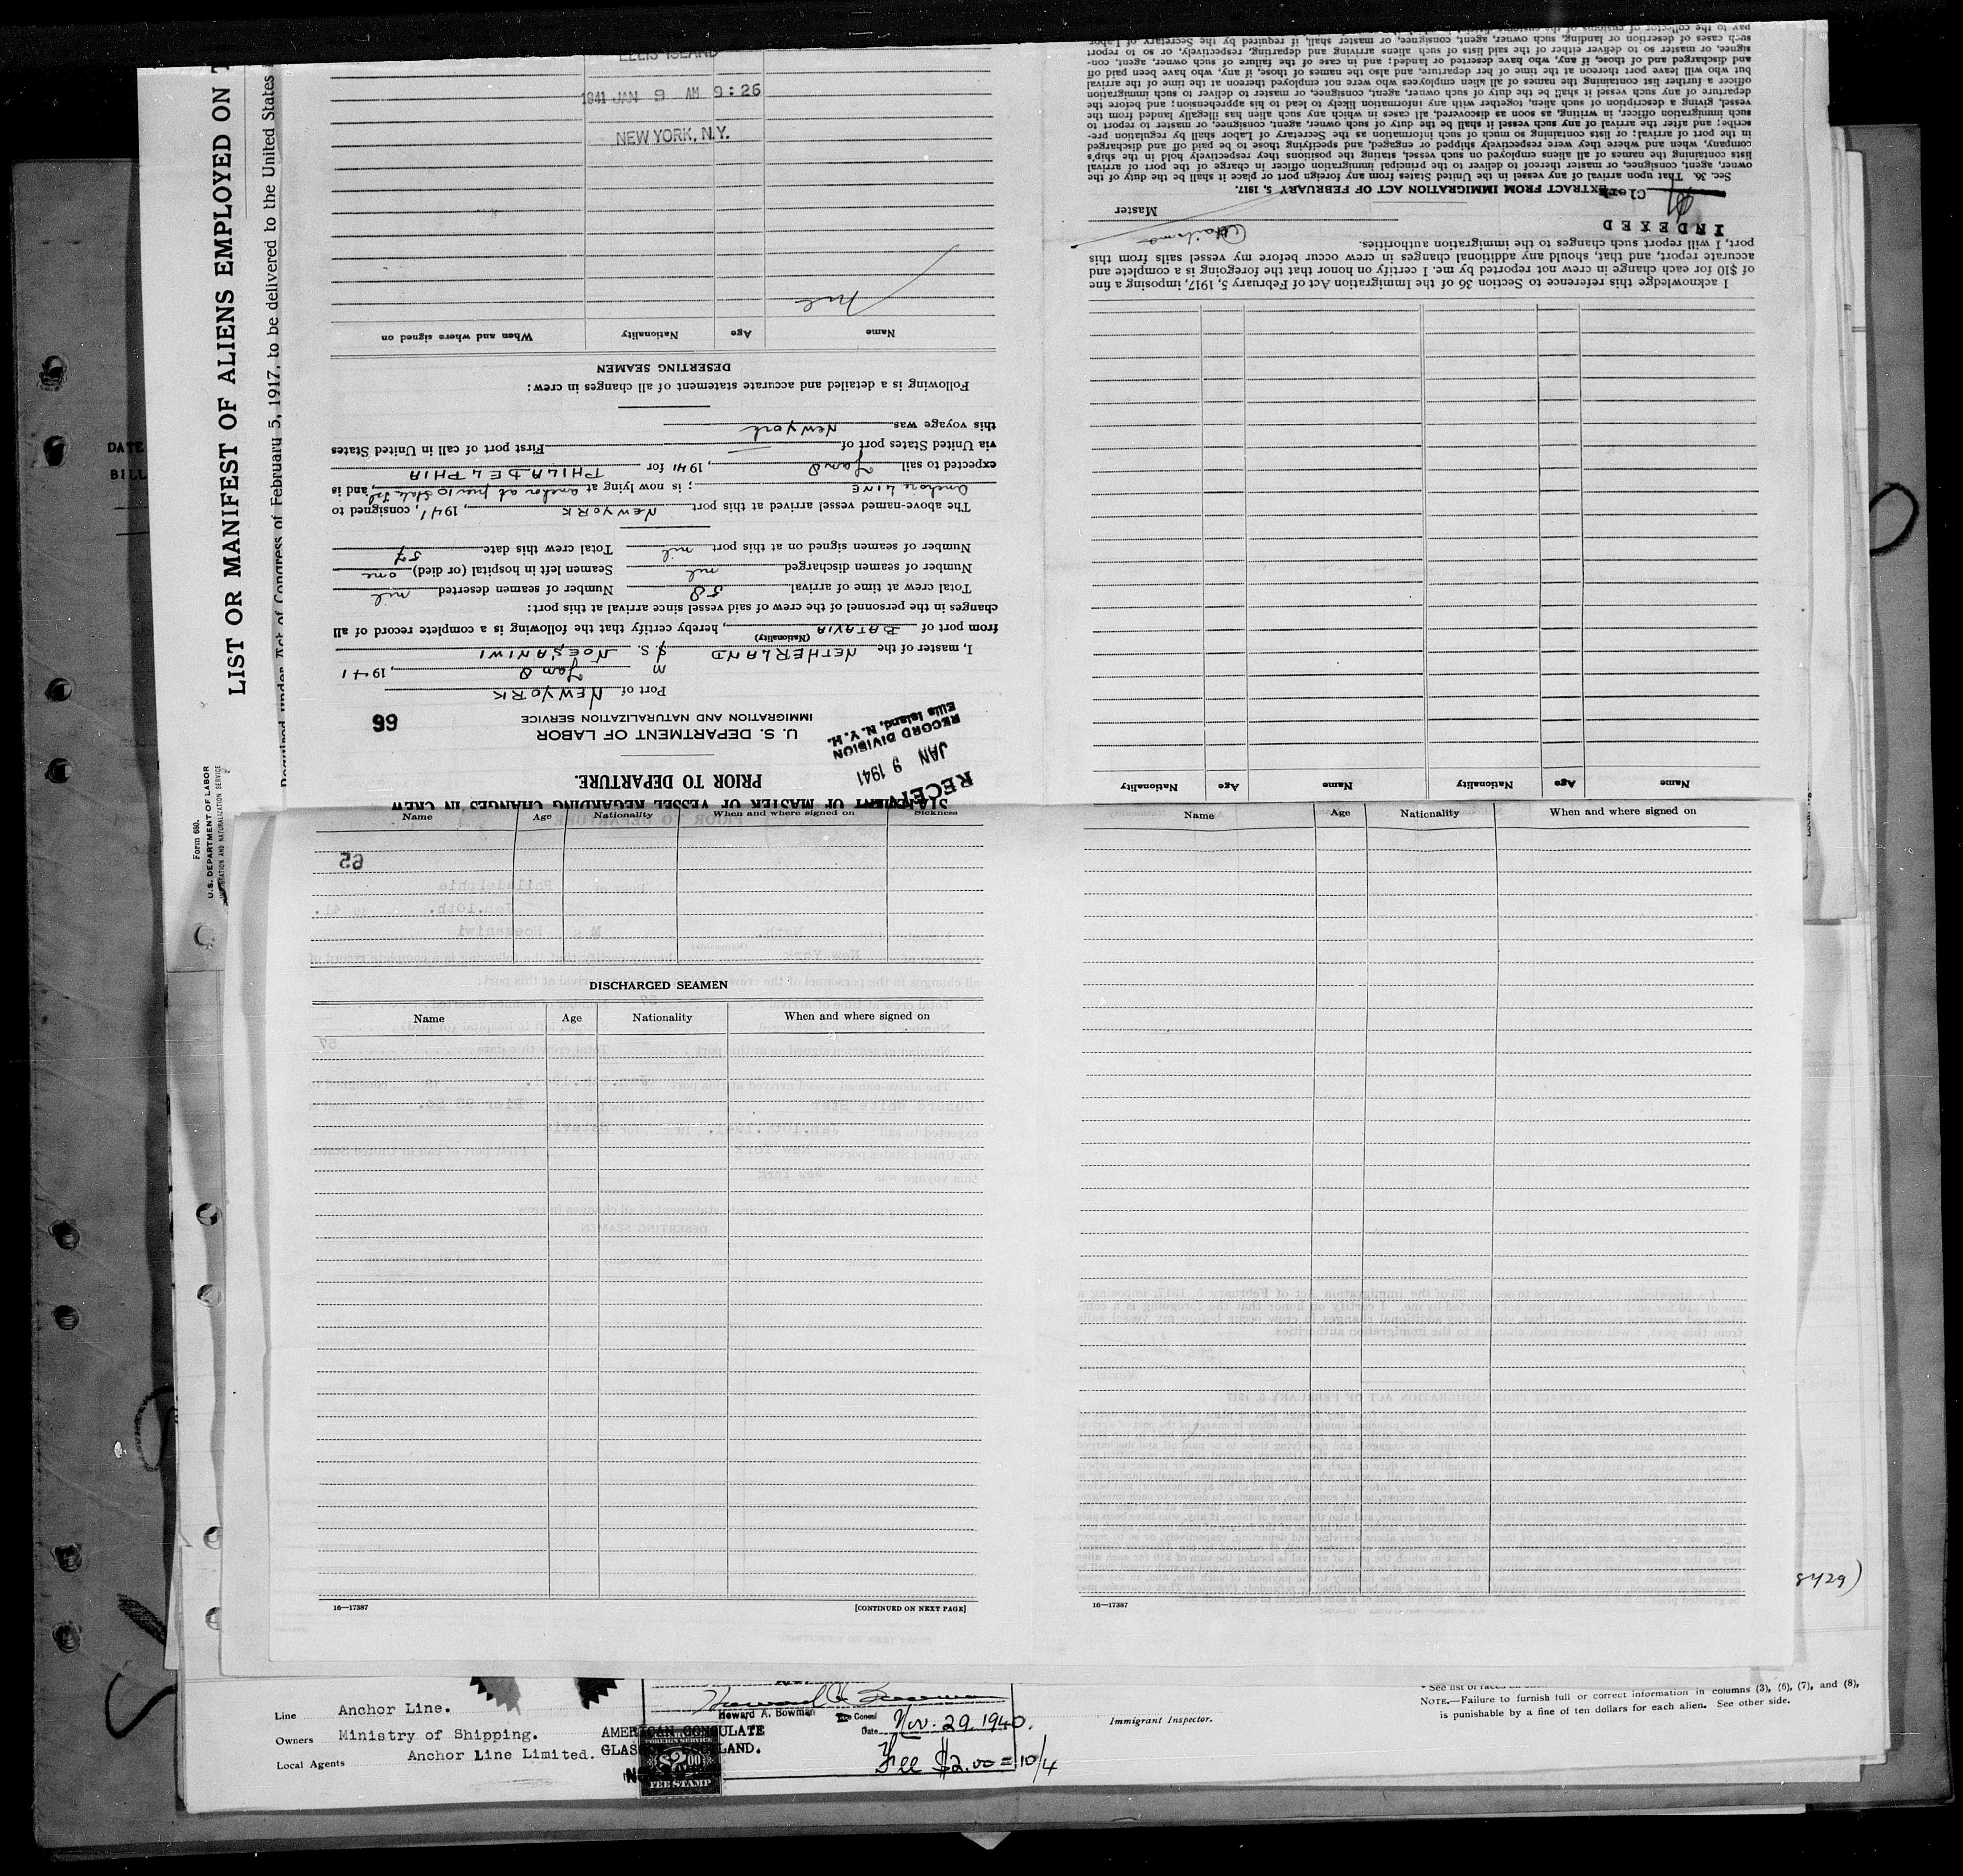 LIST OR MANIFEST OF ALIENS EMPLOYED ON
Required under Act of Congress of February 5, 1917, to be delivered to the United States
Form 680.
U. S. DEPARTMENT OF LABOR
IMMIGRATION AND NATURALIZATION SERVICE
DATE
BILL
STATEMENT OF MASTER OF VESSEL REGARDING CHANGES IN CREW
PRIOR TO DEPARTURE.
RECEIVED
JAN 9 1941
RECORD DIVISION
Ellis Island, N.Y.H.
U. S. DEPARTMENT OF LABOR
IMMIGRATION AND NATURALIZATION SERVICE
66
Port of NEWYORK
Jan 8, 1941
I, master of the NETHERLAND M S. NOESANIWI
(Nationality)
from port of BATAVIA, hereby certify that the following is a complete record of all
changes in the personnel of the crew of said vessel since arrival at this port:
Total crew at time of arrival 58 Number of seamen deserted nil
Number of seamen discharged nil Seamen left in hospital (or died) one
Number of seamen signed on at this port nil Total crew this date 57
The above-named vessel arrived at this port NEWYORK, 1941, consigned to
Anchor LINE; is now lying at anchor at pier 10, and is
expected to sail Jan 8, 1941 for PHILADELPHIA
via United States port of First port of call in United States
this voyage was Newyork
Following is a detailed and accurate statement of all changes in crew:
DESERTING SEAMEN
Name Age Nationality When and where signed on
nil
NEW YORK, N.Y.
1941 JAN 9 AM 9:26
ELLIS ISLAND
Name Age Nationality Name Age Nationality
I acknowledge this reference to Section 36 of the Immigration Act of February 5, 1917, imposing a fine
of $10 for each change in crew not reported by me. I certify on honor that the foregoing is a complete and
accurate report, and that, should any additional changes in crew occur before my vessel sails from this
port, I will report such changes to the immigration authorities.
INDEXED
Master
Clerk
EXTRACT FROM IMMIGRATION ACT OF FEBRUARY 5, 1917.
Sec. 36. That upon arrival of any vessel in the United States from any foreign port or place it shall be the duty of the
owner, agent, consignee, or master thereof to deliver to the principal immigration officer in charge of the port of arrival
lists containing the names of all aliens employed on such vessel, stating the positions they respectively hold in the ship's
company, when and where they were respectively shipped or engaged, and specifying those to be paid off and discharged
in the port of arrival; or lists containing so much of such information as the Secretary of Labor shall by regulation pre-
scribe; and after the arrival of any such vessel it shall be the duty of such owner, agent, consignee, or master to report to
such immigration officer, in writing, as soon as discovered, all cases in which any such alien has illegally landed from the
vessel, giving a description of such alien, together with any information likely to lead to his apprehension; and before the
departure of any such vessel it shall be the duty of such owner, agent, consignee, or master to deliver to such immigration
officer a further list containing the names of all alien employees who were not employed thereon at the time of the arrival
but who will leave port thereon at the time of her departure, and also the names of those, if any, who have been paid off
and discharged and of those, if any, who have deserted or landed; and in case of the failure of such owner, agent, con-
signee, or master so to deliver either of the said lists of such aliens arriving and departing, respectively, or so to report
such cases of desertion or landing, such owner, agent, consignee, or master shall, if required by the Secretary of Labor
pay to the collector of customs of the customs district
Name Age Nationality When and where signed on Sickness
65
DISCHARGED SEAMEN
Name Age Nationality When and where signed on
16—17387 [CONTINUED ON NEXT PAGE]
Name Age Nationality When and where signed on
16—17387
8429)
Line Anchor Line.
Owners Ministry of Shipping.
Local Agents Anchor Line Limited.
Howard A. Bowman
Howard A. Bowman Vice Consul
AMERICAN CONSULATE
Date Nov. 29. 1940.
Fee $2.00 = 10/4
FOREIGN SERVICE
$2.00
FEE STAMP
Immigrant Inspector.
NOTE.—Failure to furnish full or correct information in columns (3), (6), (7), and (8),
is punishable by a fine of ten dollars for each alien. See other side.